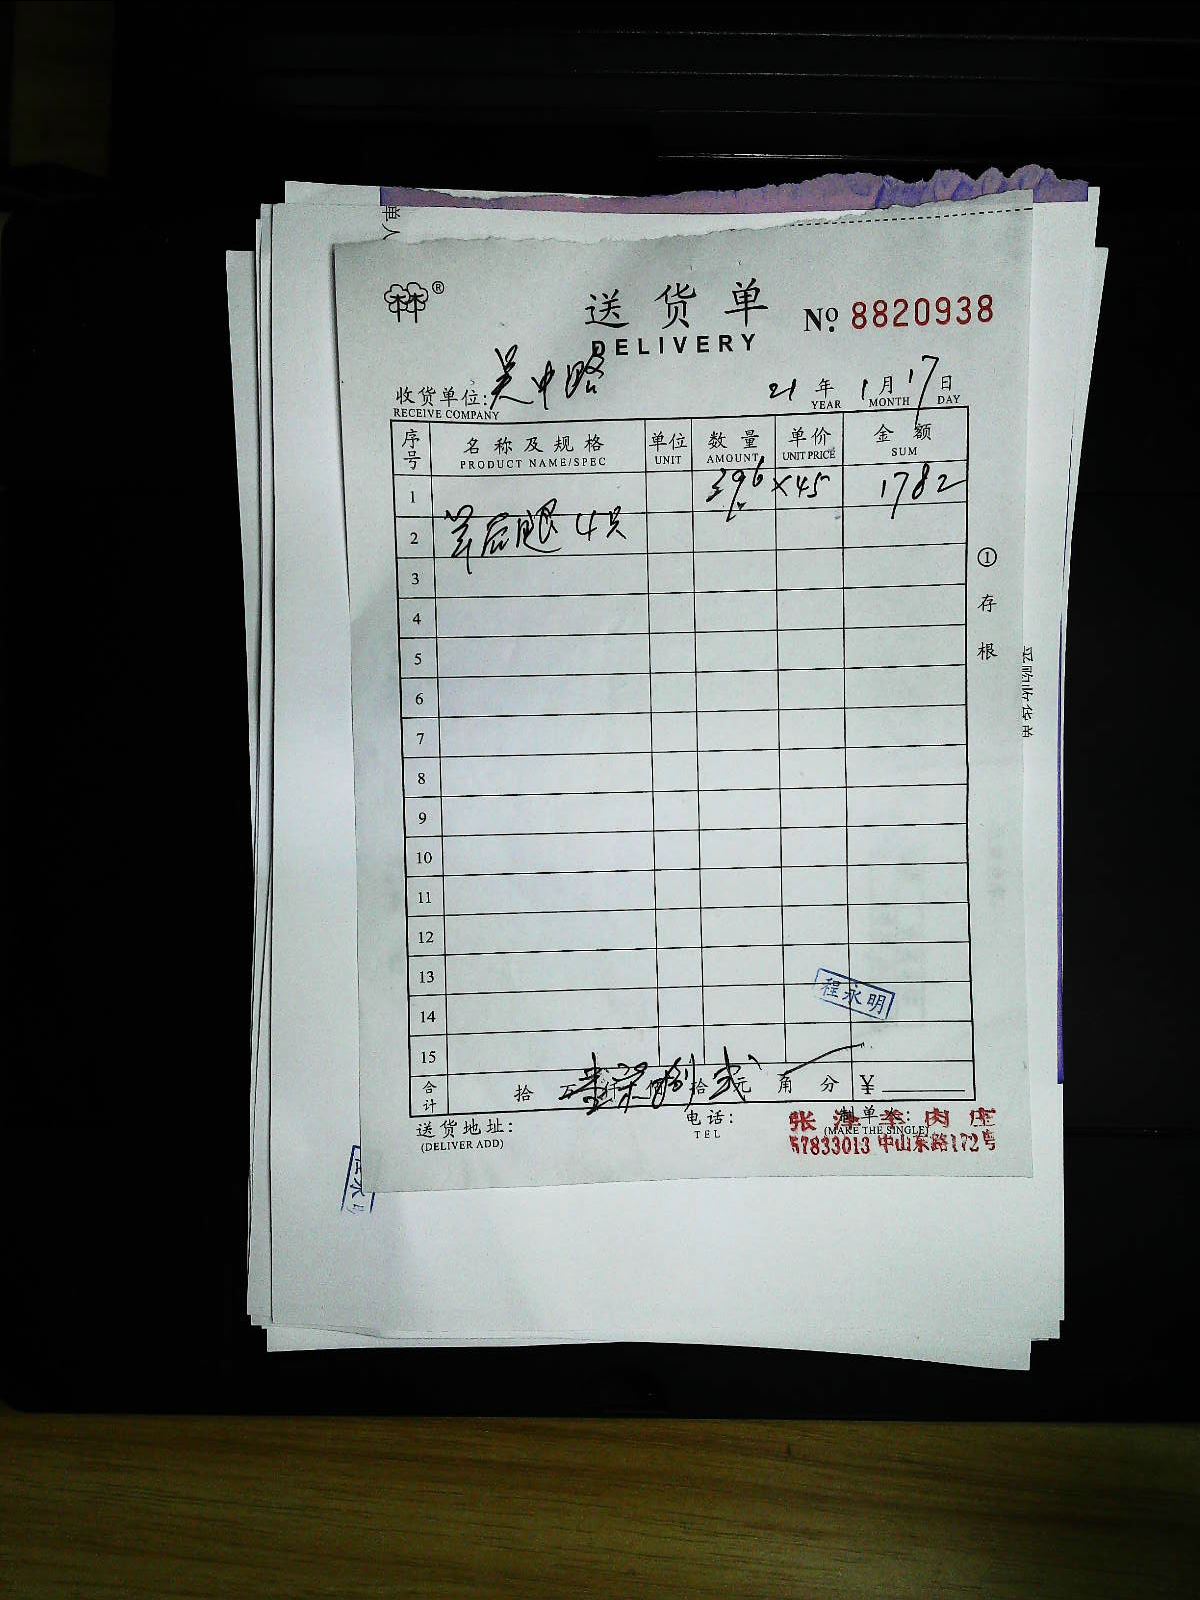 单人
林®
送货单
DELIVERY
№ 8820938
收货单位: 吴中路
RECEIVE COMPANY
21 年 1 月 17 日
YEAR MONTH DAY
序号 名称及规格 单位 数量 单价 金额
PRODUCT NAME/SPEC UNIT AMOUNT UNIT PRICE SUM
1 396 × 45 1782
2 羊后腿 4只
3
4
5
6
7
8
9
10
11
12
13
14
15
①存根
程永明
合计 拾 万 仟 佰 拾 元 角 分 ¥
壹柒捌贰
送货地址: 电话: 制单人:
(DELIVER ADD) TEL (MAKE THE SINGLE)
张泽羊肉庄
57833013 中山东路172号